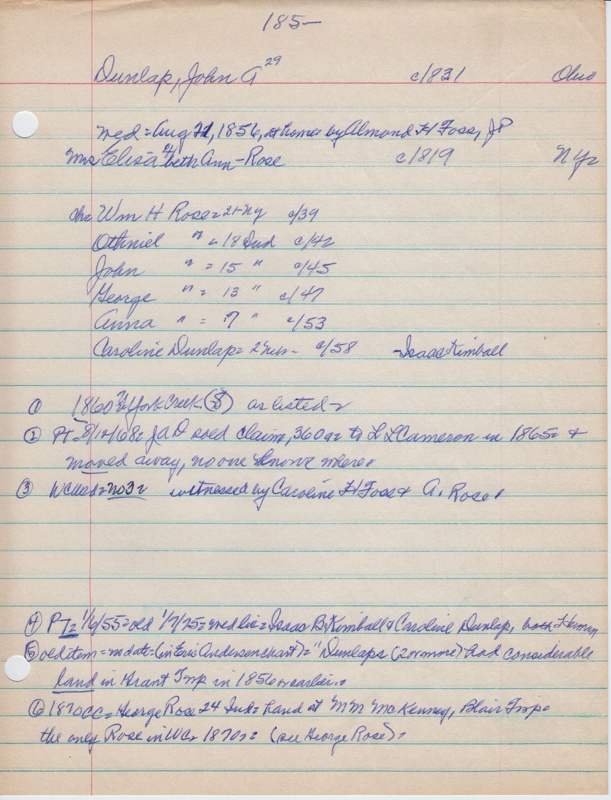 185-
Dunlap, John A 29 c/831 Ohio
wed = Aug 21, 1856, at home by Almond H Foss, JP
Mrs Elisa 41 beth Ann-Rose c/819 NYs
chs Wm H Rose = 21 - NY c/39
Othniel " = 18 Ind c/42
John " = 15 " c/45
George " = 13 " c/47
Anna " = 7 " c/53
Caroline Dunlap = 2 c/58 -Isaac Kimball
① 1860 York Creek as listed
② PT = 8/10/68 = JAD sold claim, 360 ac to L L Cameron in 1865 = &
moved away, no one knows where
③ no3 = witnessed by Caroline H Foss & A. Rose
④ PT = 1/6/55 = old 1/7/75 = wed lic = Isaac B. Kimball & Caroline Dunlap, both
⑤ old item = no date = (in Eric Andersen chart) = "Dunlaps (2 or more) had considerable
land in Grant Twp in 1856 or earlier
⑥ 1870 CC = George Rose 24 Ind = hand at M M McKenney, Blair Twp =
the only Rose in WC = 1870 = (see George Rose) =